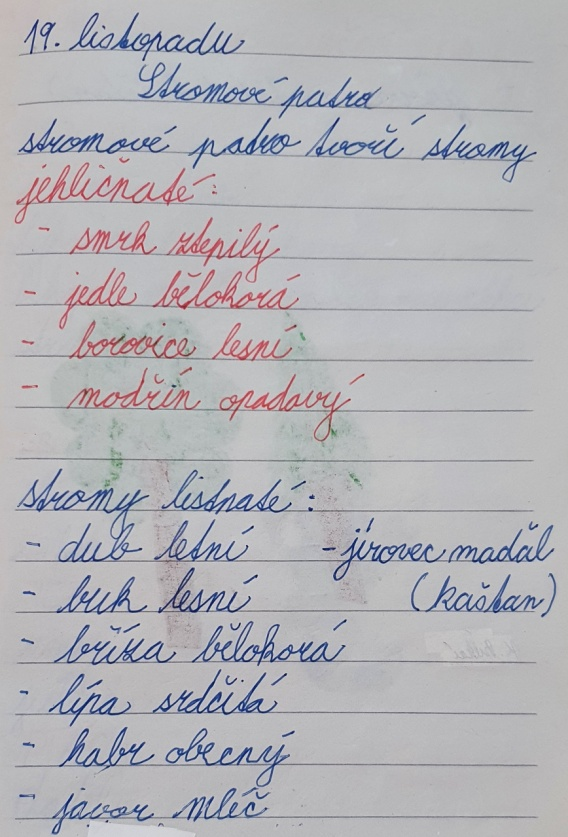 19. listopadu
Stromové patro
stromové patro tvoří stromy
jehličnaté:
- smrk ztepilý
- jedle bělokorá
- borovice lesní
- modřín opadavý
stromy listnaté:
- dub letní - jírovec maďal
- buk lesní (kaštan)
- bříza bělokorá
- lípa srdčitá
- habr obecný
- javor mléč